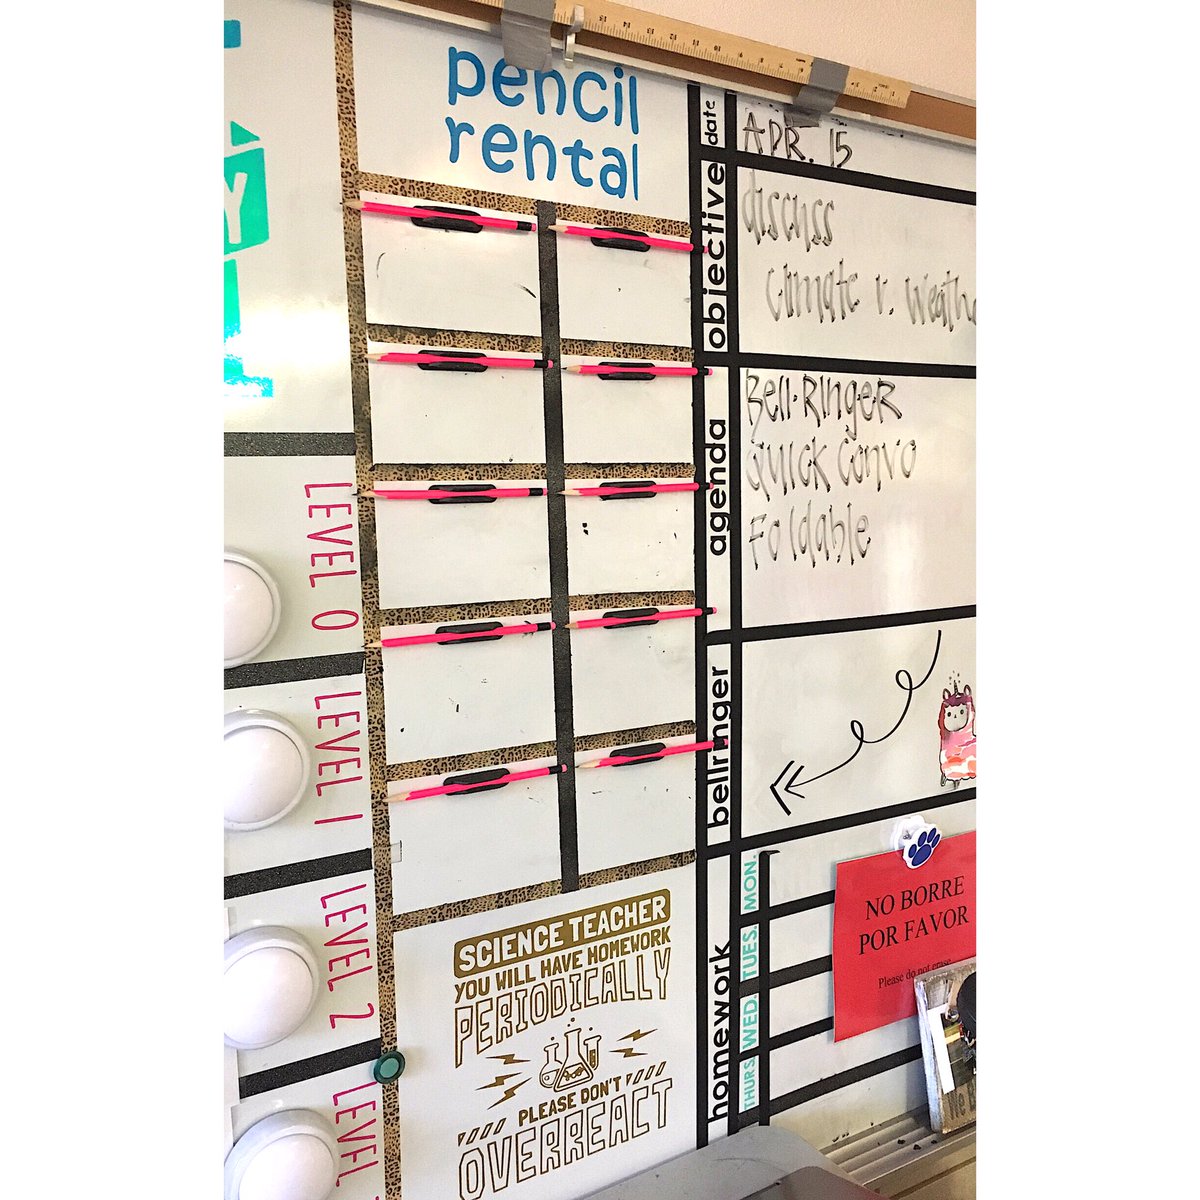 Y
pencil
rental
LEVEL 0
LEVEL 1
LEVEL 2
LEVEL
SCIENCE TEACHER
YOU WILL HAVE HOMEWORK
PERIODICALLY
PLEASE DON'T
OVERREACT
date
APR. 15
objective
discuss
climate v. Weathe
agenda
Bell-Ringer
Quick Convo
Foldable
bellringer
homework
MON.
TUES.
WED.
THURS.
NO BORRE
POR FAVOR
Please do not erase